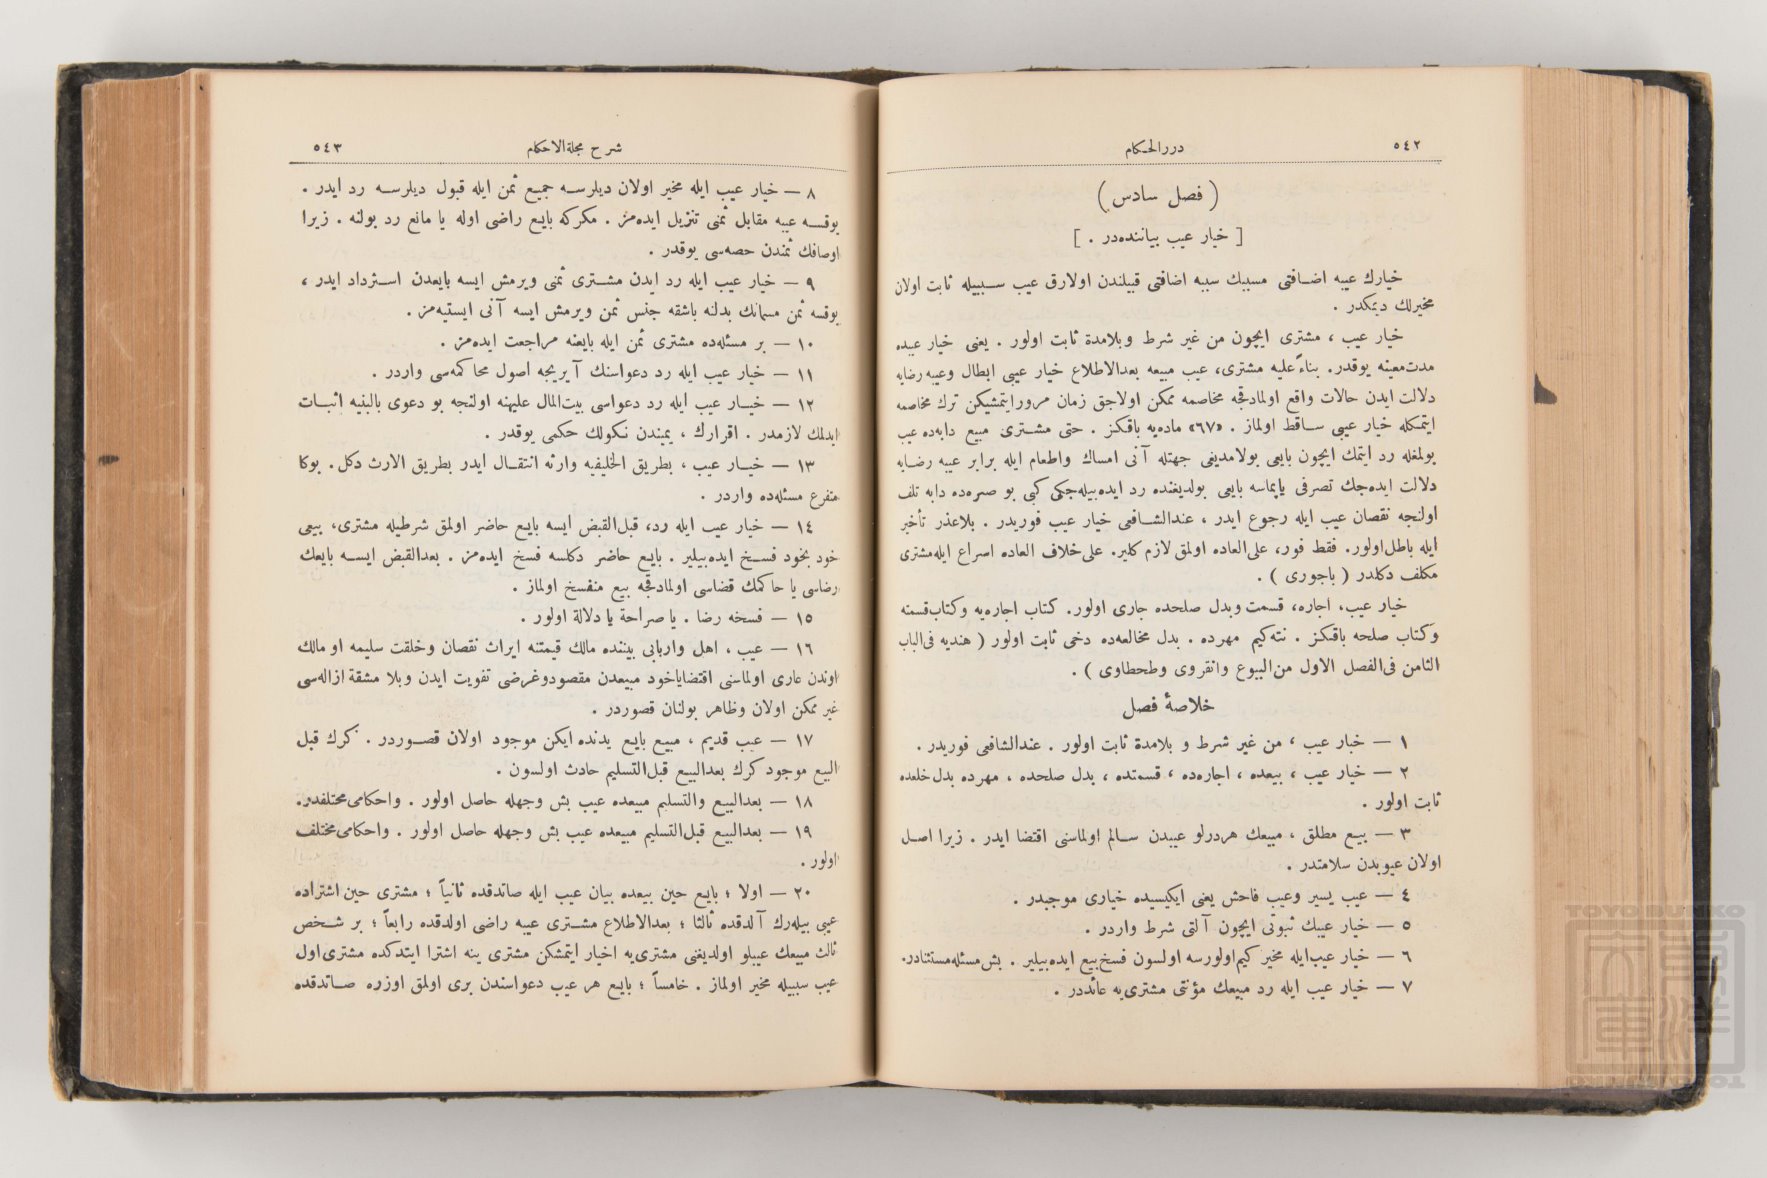 ٥٤٢
دررالحكام
( فصل سادس )
[ خيار عيب بياننده‌در . ]
خيارك عيبه اضافتى مسببك سببه اضافتى قبيلندن اولارق عيب سببيله ثابت اولان
مخيرلك ديمكدر .
خيار عيب ، مشترى ايچون من غير شرط وبلامدة ثابت اولور . يعنى خيار عيبده
مدت‌معينه يوقدر. بناءً عليه مشترى، عيب مبيعه بعدالاطلاع خيار عيبى ابطال وعيبه رضايه
دلالت ايدن حالات واقع اولمادقجه مخاصمه ممكن اولاجق زمان مرورايتمشيكن ترك مخاصمه
ايتمكله خيار عيبى ساقط اولماز . «٦٧» ماده‌يه باقكز . حتى مشترى مبيع دابه‌ده عيب
بولمغله رد ايتمك ايچون بايعى بولامديغى جهتله آنى امساك واطعام ايله برابر عيبه رضايه
دلالت ايده‌جك تصرفى ياپماسه بايعى بولديغنده رد ايده‌بيله‌جكى كبى بو صره‌ده دابه تلف
اولنجه نقصان عيب ايله رجوع ايدر ، عندالشافعى خيار عيب فوريدر . بلاعذر تأخير
ايله باطل‌اولور. فقط فور، على‌العاده اولمق لازم كلير. على‌خلاف العاده اسراع ايله‌مشترى
مكلف دكلدر ( باجورى ) .
خيار عيب، اجاره، قسمت وبدل صلحده جارى اولور. كتاب اجاره‌يه وكتاب‌قسمته
وكتاب صلحه باقكز . نته‌كيم مهرده . بدل مخالعه‌ده دخى ثابت اولور ( هنديه فى‌الباب
الثامن فى‌الفصل الاول من‌البيوع وانقروى وطحطاوى ) .
خلاصهٔ فصل
١ — خيار عيب ، من غير شرط و بلامدة ثابت اولور . عندالشافعى فوريدر .
٢ — خيار عيب ، بيعده ، اجاره‌ده ، قسمتده ، بدل صلحده ، مهرده بدل‌خلعده
ثابت اولور .
٣ — بيع مطلق ، مبيعك هردرلو عيبدن سالم اولماسنى اقتضا ايدر . زيرا اصل
اولان عيوبدن سلامتدر .
٤ — عيب يسير وعيب فاحش يعنى ايكيسيده خيارى موجبدر .
٥ — خيار عيبك ثبوتى ايچون آلتى شرط واردر .
٦ — خيار عيب‌ايله مخير كيم‌اولورسه اولسون فسخ‌بيع ايده‌بيلير . بش‌مسئله‌مستثنادر.
٧ — خيار عيب ايله رد مبيعك مؤنتى مشترى‌يه عائددر .
شرح مجلةالاحكام
٥٤٣
٨ — خيار عيب ايله مخير اولان ديلرسه جميع ثمن ايله قبول ديلرسه رد ايدر .
يوقسه عيبه مقابل ثمنى تنزيل ايده‌مز . مكركه بايع راضى اوله يا مانع رد بولنه . زيرا
اوصافك ثمندن حصه‌سى يوقدر .
٩ — خيار عيب ايله رد ايدن مشترى ثمنى ويرمش ايسه بايعدن استرداد ايدر ،
يوقسه ثمن مسمانك بدلنه باشقه جنس ثمن ويرمش ايسه آنى ايستيه‌مز .
١٠ — بر مسئله‌ده مشترى ثمن ايله بايعنه مراجعت ايده‌مز .
١١ — خيار عيب ايله رد دعواسنك آيريجه اصول محاكمه‌سى واردر .
١٢ — خيار عيب ايله رد دعواسى بيت‌المال عليهنه اولنجه بو دعوى بالبينه اثبات
ايدلمك لازمدر . اقرارك ، يميندن نكولك حكمى يوقدر .
١٣ — خيار عيب ، بطريق الخليفيه وارثه انتقال ايدر بطريق الارث دكل. بوكا
متفرع مسئله‌ده واردر .
١٤ — خيار عيب ايله رد، قبل‌القبض ايسه بايع حاضر اولمق شرطيله مشترى، بيعى
خود بخود فسخ ايده‌بيلير . بايع حاضر دكلسه فسخ ايده‌مز . بعدالقبض ايسه بايعك
رضاسى يا حاكمك قضاسى اولمادقجه بيع منفسخ اولماز .
١٥ — فسخه رضا . يا صراحة يا دلالة اولور .
١٦ — عيب ، اهل واربابى بيننده مالك قيمتنه ايراث نقصان وخلقت سليمه او مالك
اوندن عارى اولماسنى اقتضاياخود مبيعدن مقصودوغرضى تفويت ايدن وبلا مشقة ازاله‌سى
غير ممكن اولان وظاهر بولنان قصوردر .
١٧ — عيب قديم ، مبيع بايع يدنده ايكن موجود اولان قصوردر . كرك قبل
البيع موجود كرك بعدالبيع قبل‌التسليم حادث اولسون .
١٨ — بعدالبيع والتسليم مبيعده عيب بش وجهله حاصل اولور . واحكامى‌مختلفدر.
١٩ — بعدالبيع قبل‌التسليم مبيعده عيب بش وجهله حاصل اولور . واحكامى‌مختلف
اولور .
٢٠ — اولا ؛ بايع حين بيعده بيان عيب ايله صاتدقده ثانياً ؛ مشترى حين اشتراده
عيبى بيله‌رك آلدقده ثالثا ؛ بعدالاطلاع مشترى عيبه راضى اولدقده رابعاً ؛ بر شخص
ثالث مبيعك عيبلو اولديغنى مشترى‌يه اخبار ايتمشكن مشترى ينه اشترا ايتدكده مشترى‌اول
عيب سببيله مخير اولماز . خامساً ؛ بايع هر عيب دعواسندن برى اولمق اوزره صاتدقده
TOYO BUNKO